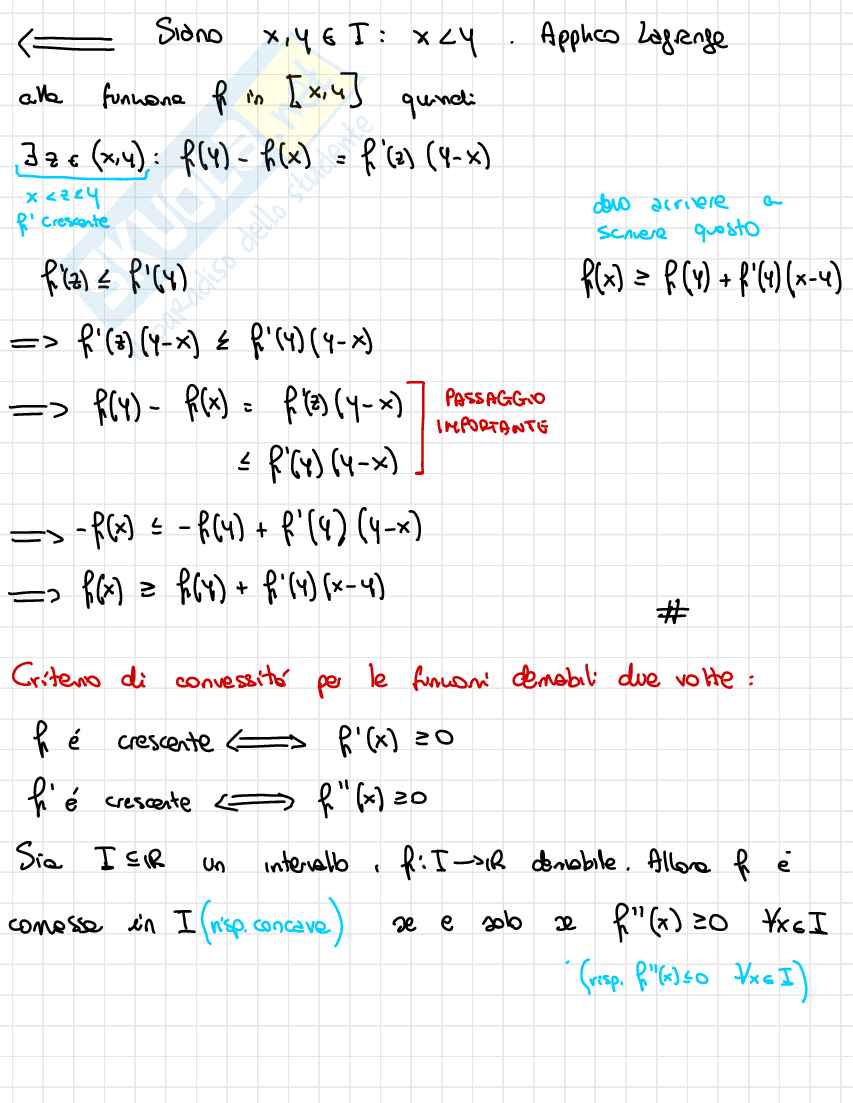 ⟸ Siano x,y ∈ I : x < y . Applico Lagrange
alla funzione f in [x,y] quindi
∃ z ∈ (x,y) : f(y) - f(x) = f'(z) (y-x)
x < z < y
f' crescente
devo arrivare a
scrivere questo
f'(z) ≤ f'(y)
f(x) ≥ f(y) + f'(y)(x-y)
=> f'(z)(y-x) ≤ f'(y)(y-x)
=> f(y) - f(x) = f'(z)(y-x)
≤ f'(y)(y-x)
PASSAGGIO
IMPORTANTE
=> -f(x) ≤ -f(y) + f'(y)(y-x)
=> f(x) ≥ f(y) + f'(y)(x-y)
#
Criterio di convessitá per le funzioni derivabili due volte :
f é crescente <=> f'(x) ≥0
f' é crescente <=> f''(x) ≥0
Sia I ⊆ ℝ un intervallo , f: I → ℝ derivabile. Allora f é
convessa in I (risp. concava) se e solo se f''(x) ≥0 ∀x∈I
(risp. f''(x)≤0 ∀x∈I)
SKUOLA.net
paradiso dello studente